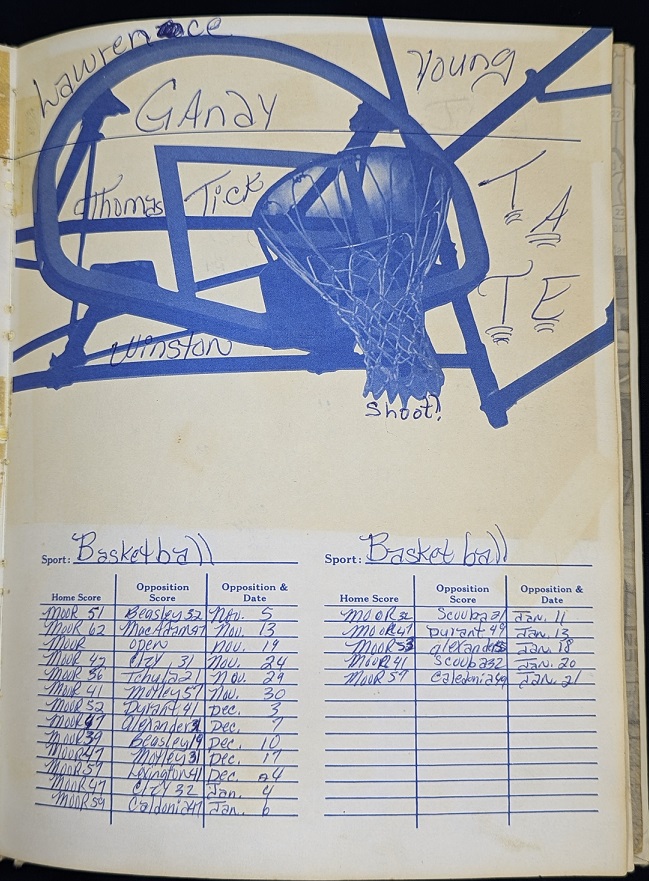 Lawrence
Young
GAndy
Thomas Tick
TATE
Winston
Shoot!
Sport: Basketball
Home Score Opposition Score Opposition & Date
MOOR 51 Beasley 32 Nov. 5
MOOR 62 MacAdams Nov. 13
MOOR open Nov. 19
MOOR 42 31 Nov. 24
MOOR 36 Tchula 21 Nov. 29
MOOR 41 Motley 57 Nov. 30
MOOR 52 Durant 41 Dec. 3
MOOR 47 Alexander Dec. 7
MOOR 39 Beasley 19 Dec. 10
MOOR 47 Motley 31 Dec. 17
MOOR 57 Lexington 41 Dec.
MOOR 47 32 Jan. 4
MOOR 59 Caldonia 47 Jan. 6
Sport: Basket ball
Home Score Opposition Score Opposition & Date
MOOR 32 Scooba 31 Jan. 11
MOOR 47 Durant 49 Jan. 13
MOOR 53 alexander Jan. 18
MOOR 41 Scouba 32 Jan. 20
MOOR 57 Caledonia 49 Jan. 21